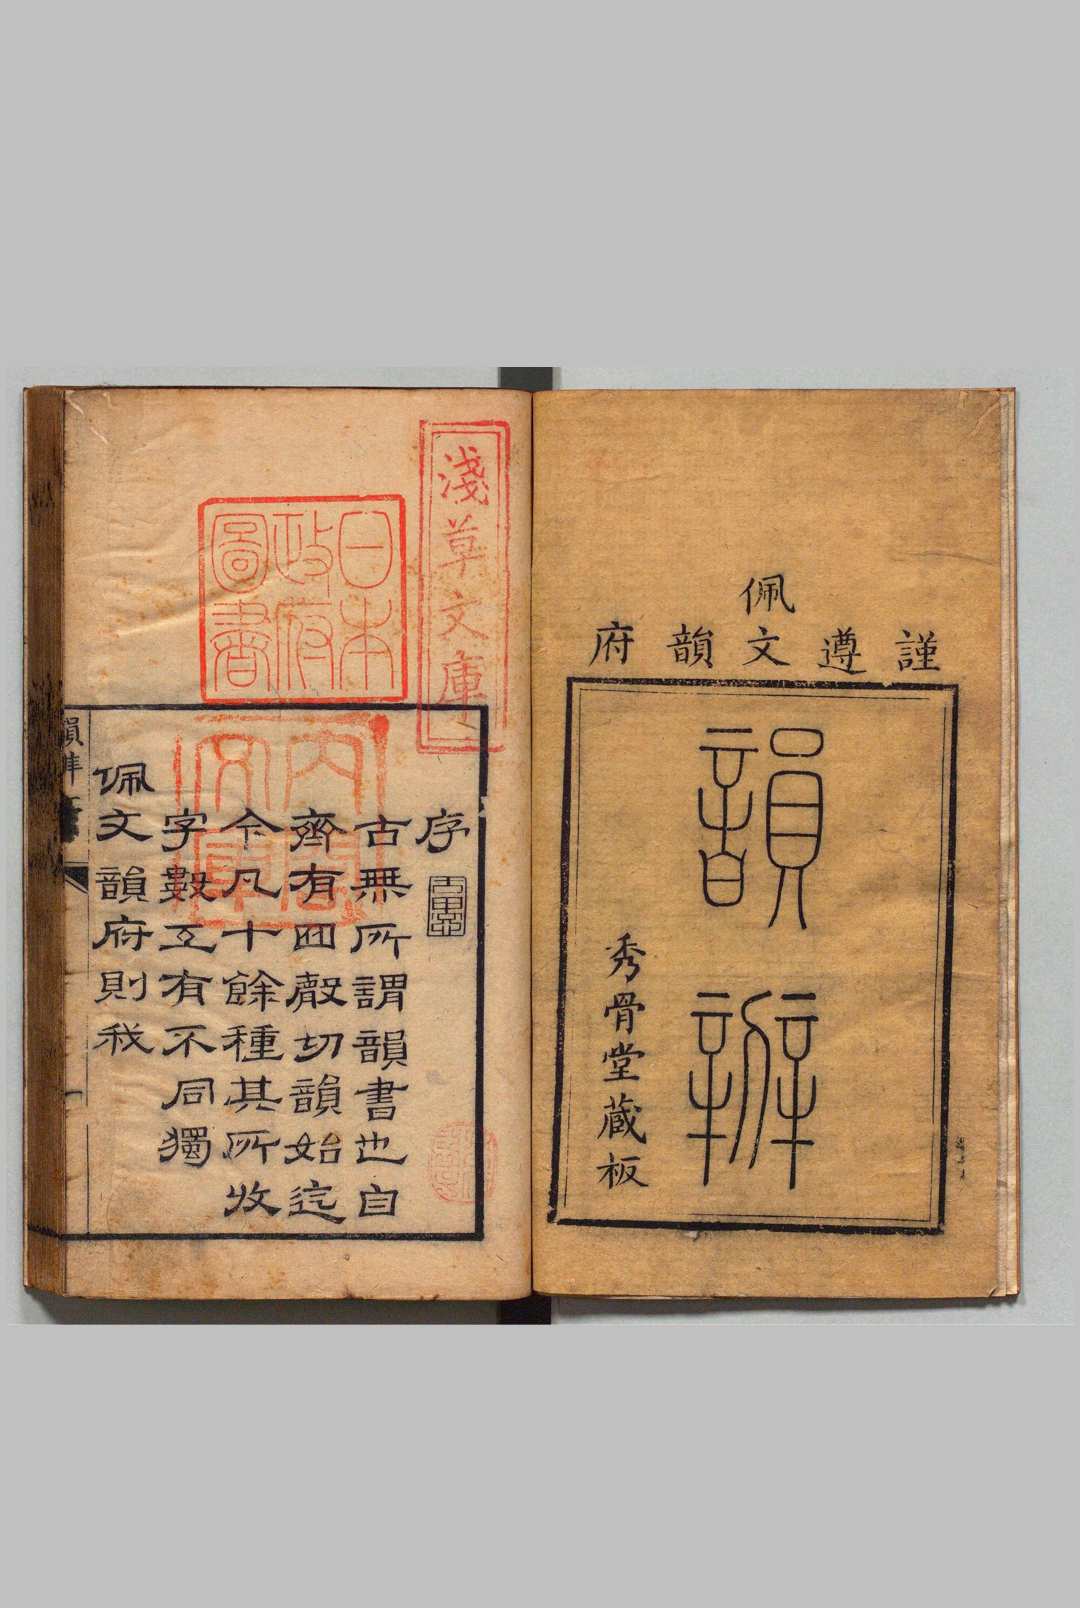 謹遵佩文韻府
韻辨
秀骨堂藏板
淺草文庫
日本政府圖書
內閣文庫
序
古無所謂韻書也自
齊有四聲切韻始迄
今凡十餘種其所收
字數互有不同獨
佩文韻府則我